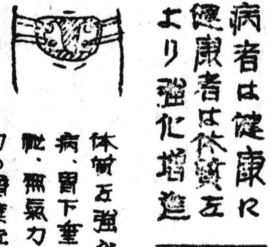 病者は健康に
健康者は体質を
より強化増進
体質を強化
病、胃下垂
無氣力